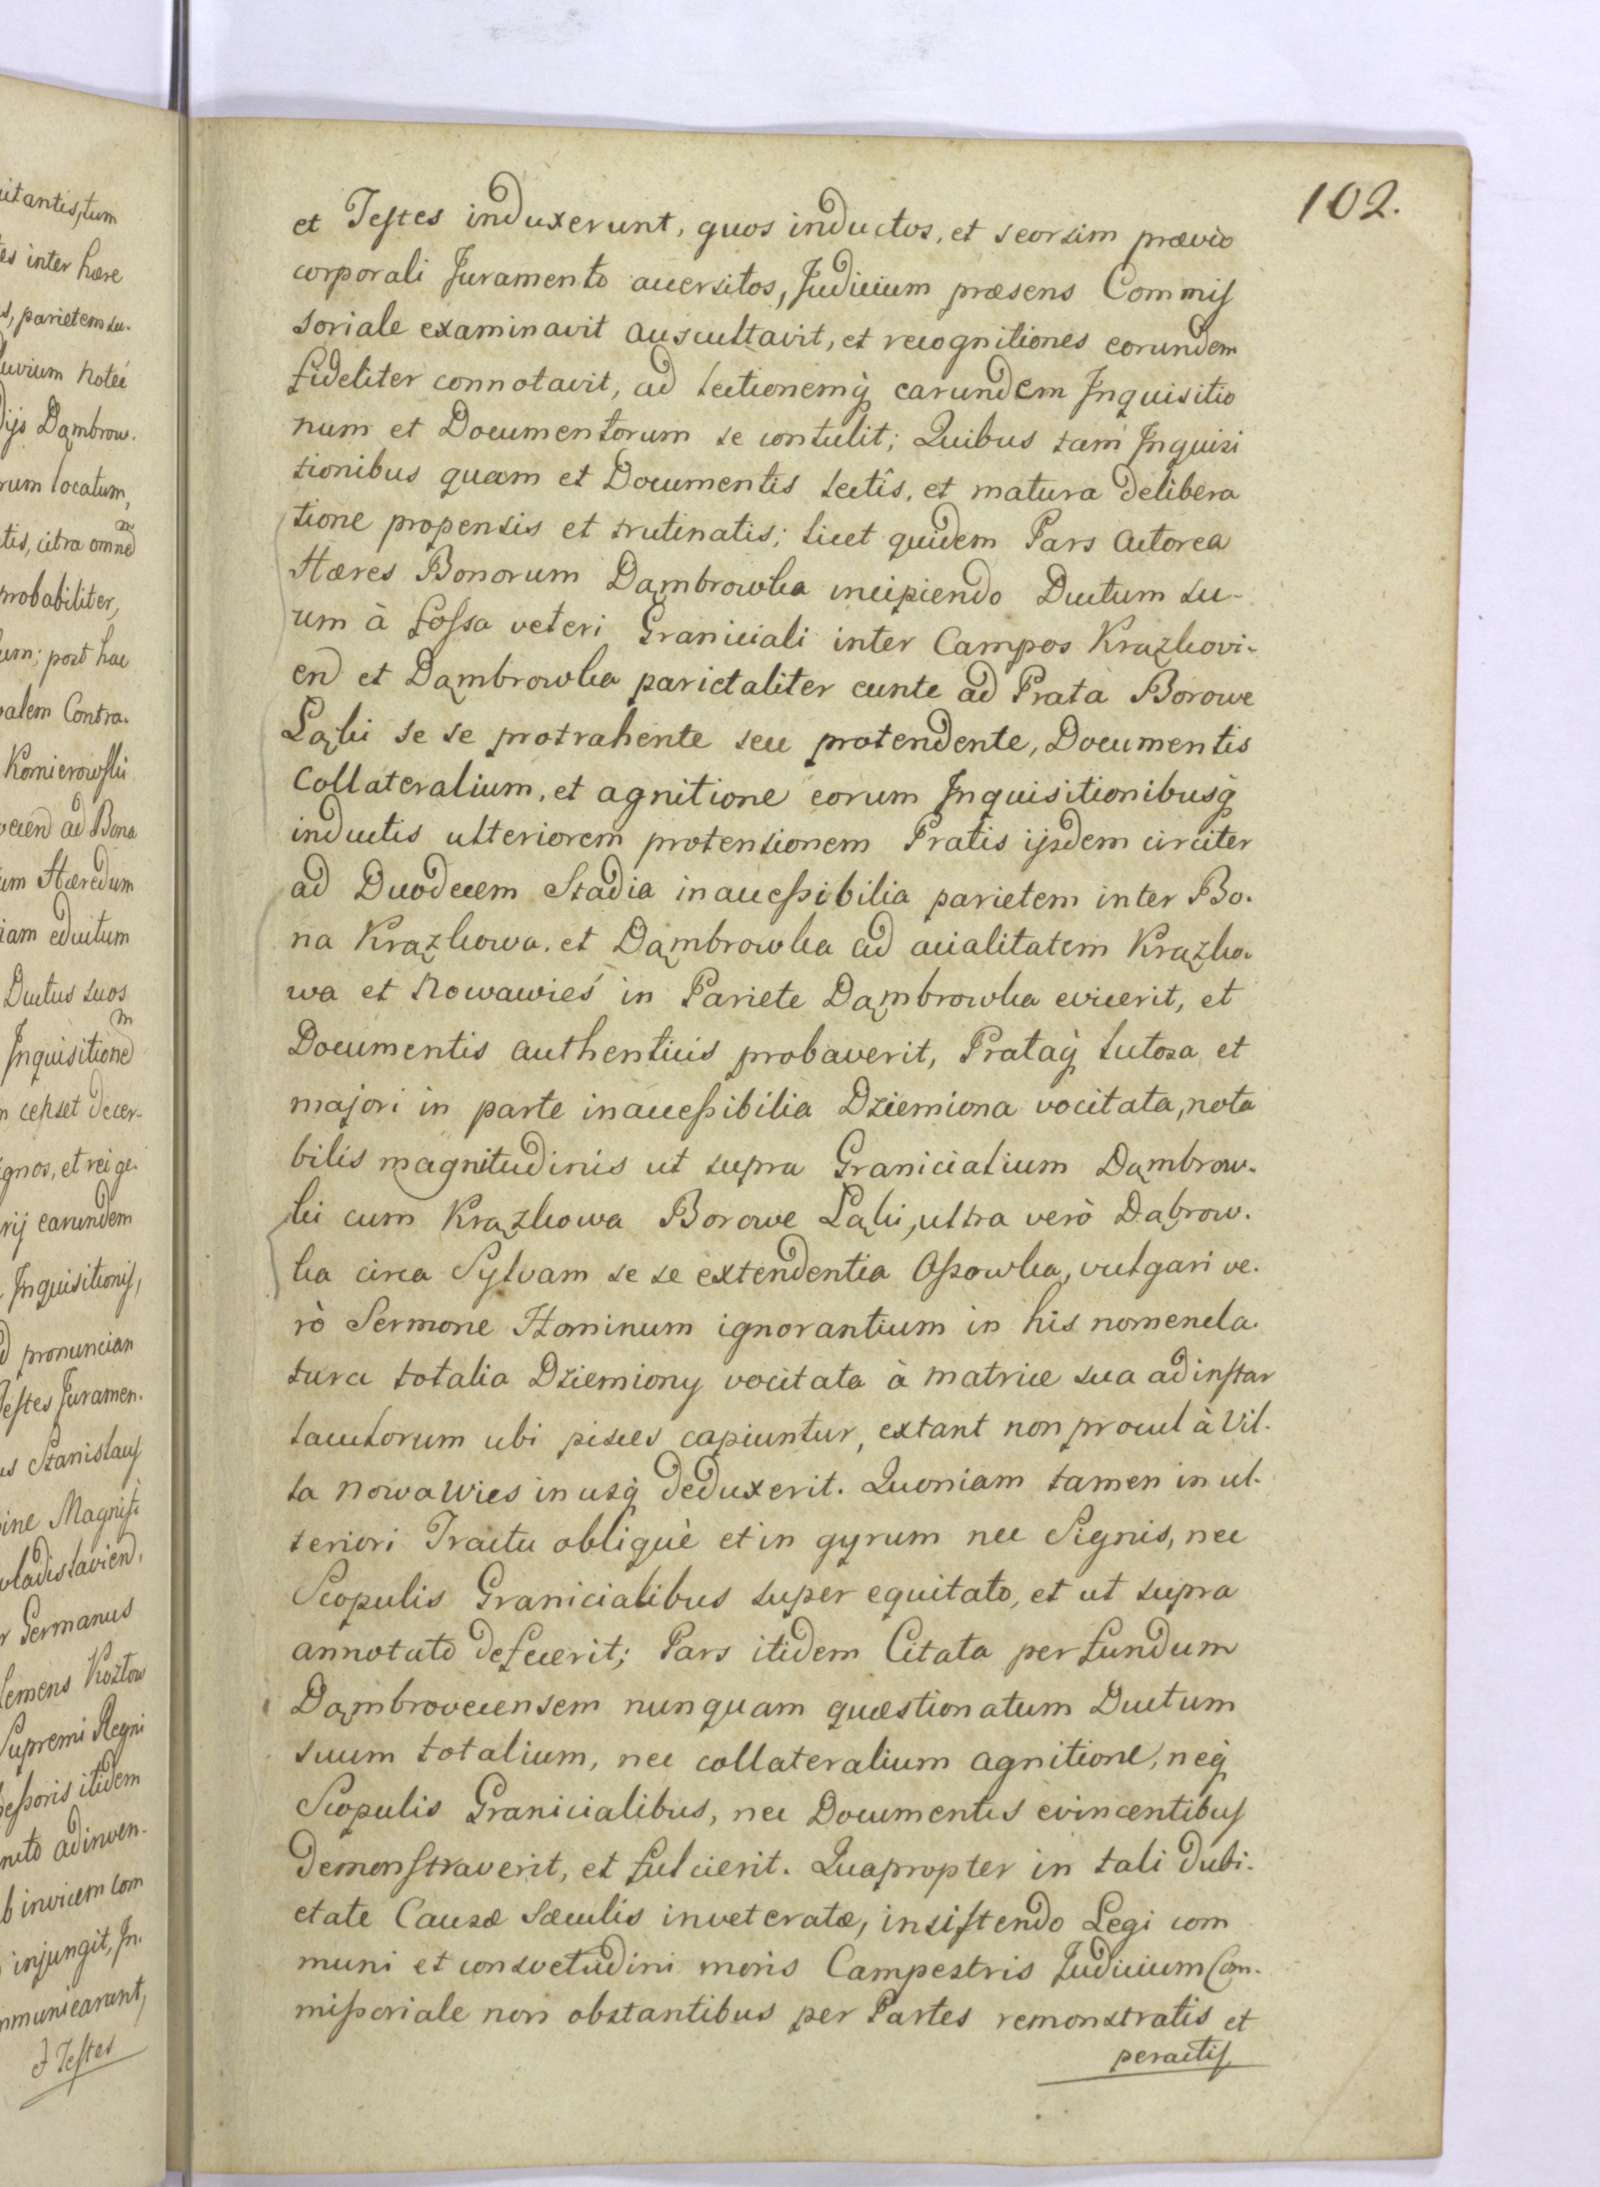 uitantis, tum
es inter hære
s, parietem su-
luvium notei
Dijs Dąmbrow.
rum locatum,
tis, citra omned
probabiliter,
um; post hac
valem Contra-
Komierowski
ovcien ad Bona
um Hæredum
iam eductum
Ductus suos
Inquisitionem
n censet decer-
gnos, et rei ge-
rij earundem
Inquisitionis,
d pronuncian
Testes Juramen-
us Stanislaus
ine Magnifi
vladislavien,
r Germanus
lemens Kozłow
Supremi Regni
sessoris itidem
neto adinven-
b invicem com
injungit, In-
mmunicarunt,
et Testes
102.
et Testes induxerunt, quos inductos, et seorsim prævio
corporali Juramento accersitos, Judicium præsens Commis
soriale examinavit auscultavit, et recognitiones eorundem
fideliter connotavit, ad lectionemq̀ earundem Inquisitio
num et Documentorum se contulit; Quibus tam Inquisi
tionibus quam et Documentis lectîs, et matura delibera
tione propensis et trutinatis; licet quidem Pars Actorea
Hæres Bonorum Dąmbrowka incipiendo Ductum su-
um à fossa veteri Graniciali inter Campos Krązkovi-
en et Dąmbrowka parietaliter eunte ad Prata Borowe
Łąki se se protrahente seu protendente, Documentis
Collateralium, et agnitione eorum Inquisitionibusq̀
inductis ulteriorem protensionem Pratis ijsdem circiter
ad Duodecem Stadia inaccessibilia parietem inter Bo-
na Krązkowa, et Dąmbrowka ad acialitatem Krązko-
wa et Nowawieś in Pariete Dąmbrowka evicerit, et
Documentis authenticis probaverit, Prataq̀ lutosa et
majori in parte inaccessibilia Dziemiona vocitata, nota
bilis magnitudinis ut supra Granicialium Dąmbrow-
ki cum Krązkowa Borowe Łąki, ultra verò Dąbrow-
ka circa Sylvam se se extendentia Ossowka, vulgari ve-
rò Sermone Hominum ignorantium in his nomencla-
tura totalia Dziemiony vocitata à matrice sua ad instar
lacutorum ubi pisces capiuntur, extant non procul à Vil-
la Nowa Wies in usq̀ deduxerit. Quoniam tamen in ul-
teriori Tractu obliquè et in gyrum nec Signis, nec
Scopulis Granicialibus super equitato, et ut supra
annotato defecerit; Pars itidem Citata per fundum
Dąmbrovecensem nunquam quæstionatum Ductum
suum totalium, nec collateralium agnitione, neq̀
Scopulis Granicialibus, nec Documentis evincentibus
demonstraverit, et fulcierit. Quapropter in tali dubi-
etate Causæ sæculis inveteratæ, insistendo Legi com
muni et consvetudini moris Campestris Judicium Com-
missoriale non obstantibus per Partes remonstratis et
peractis